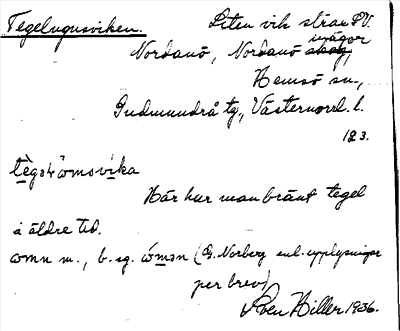 Tegelugnsviken. Liten vik strax SV.
Nordanö, Nordanö ovägor
skog,
Hemsö sn.,
Gudmundrå tg., Västernorrl. l.
183.
tègəlⱥ̀mnsvika
Här har man bränt tegel
i äldre tid.
omn m., b. sg. ómən (G. Norberg enl. upplysningar
per brev)
Sven Hiller 1936.